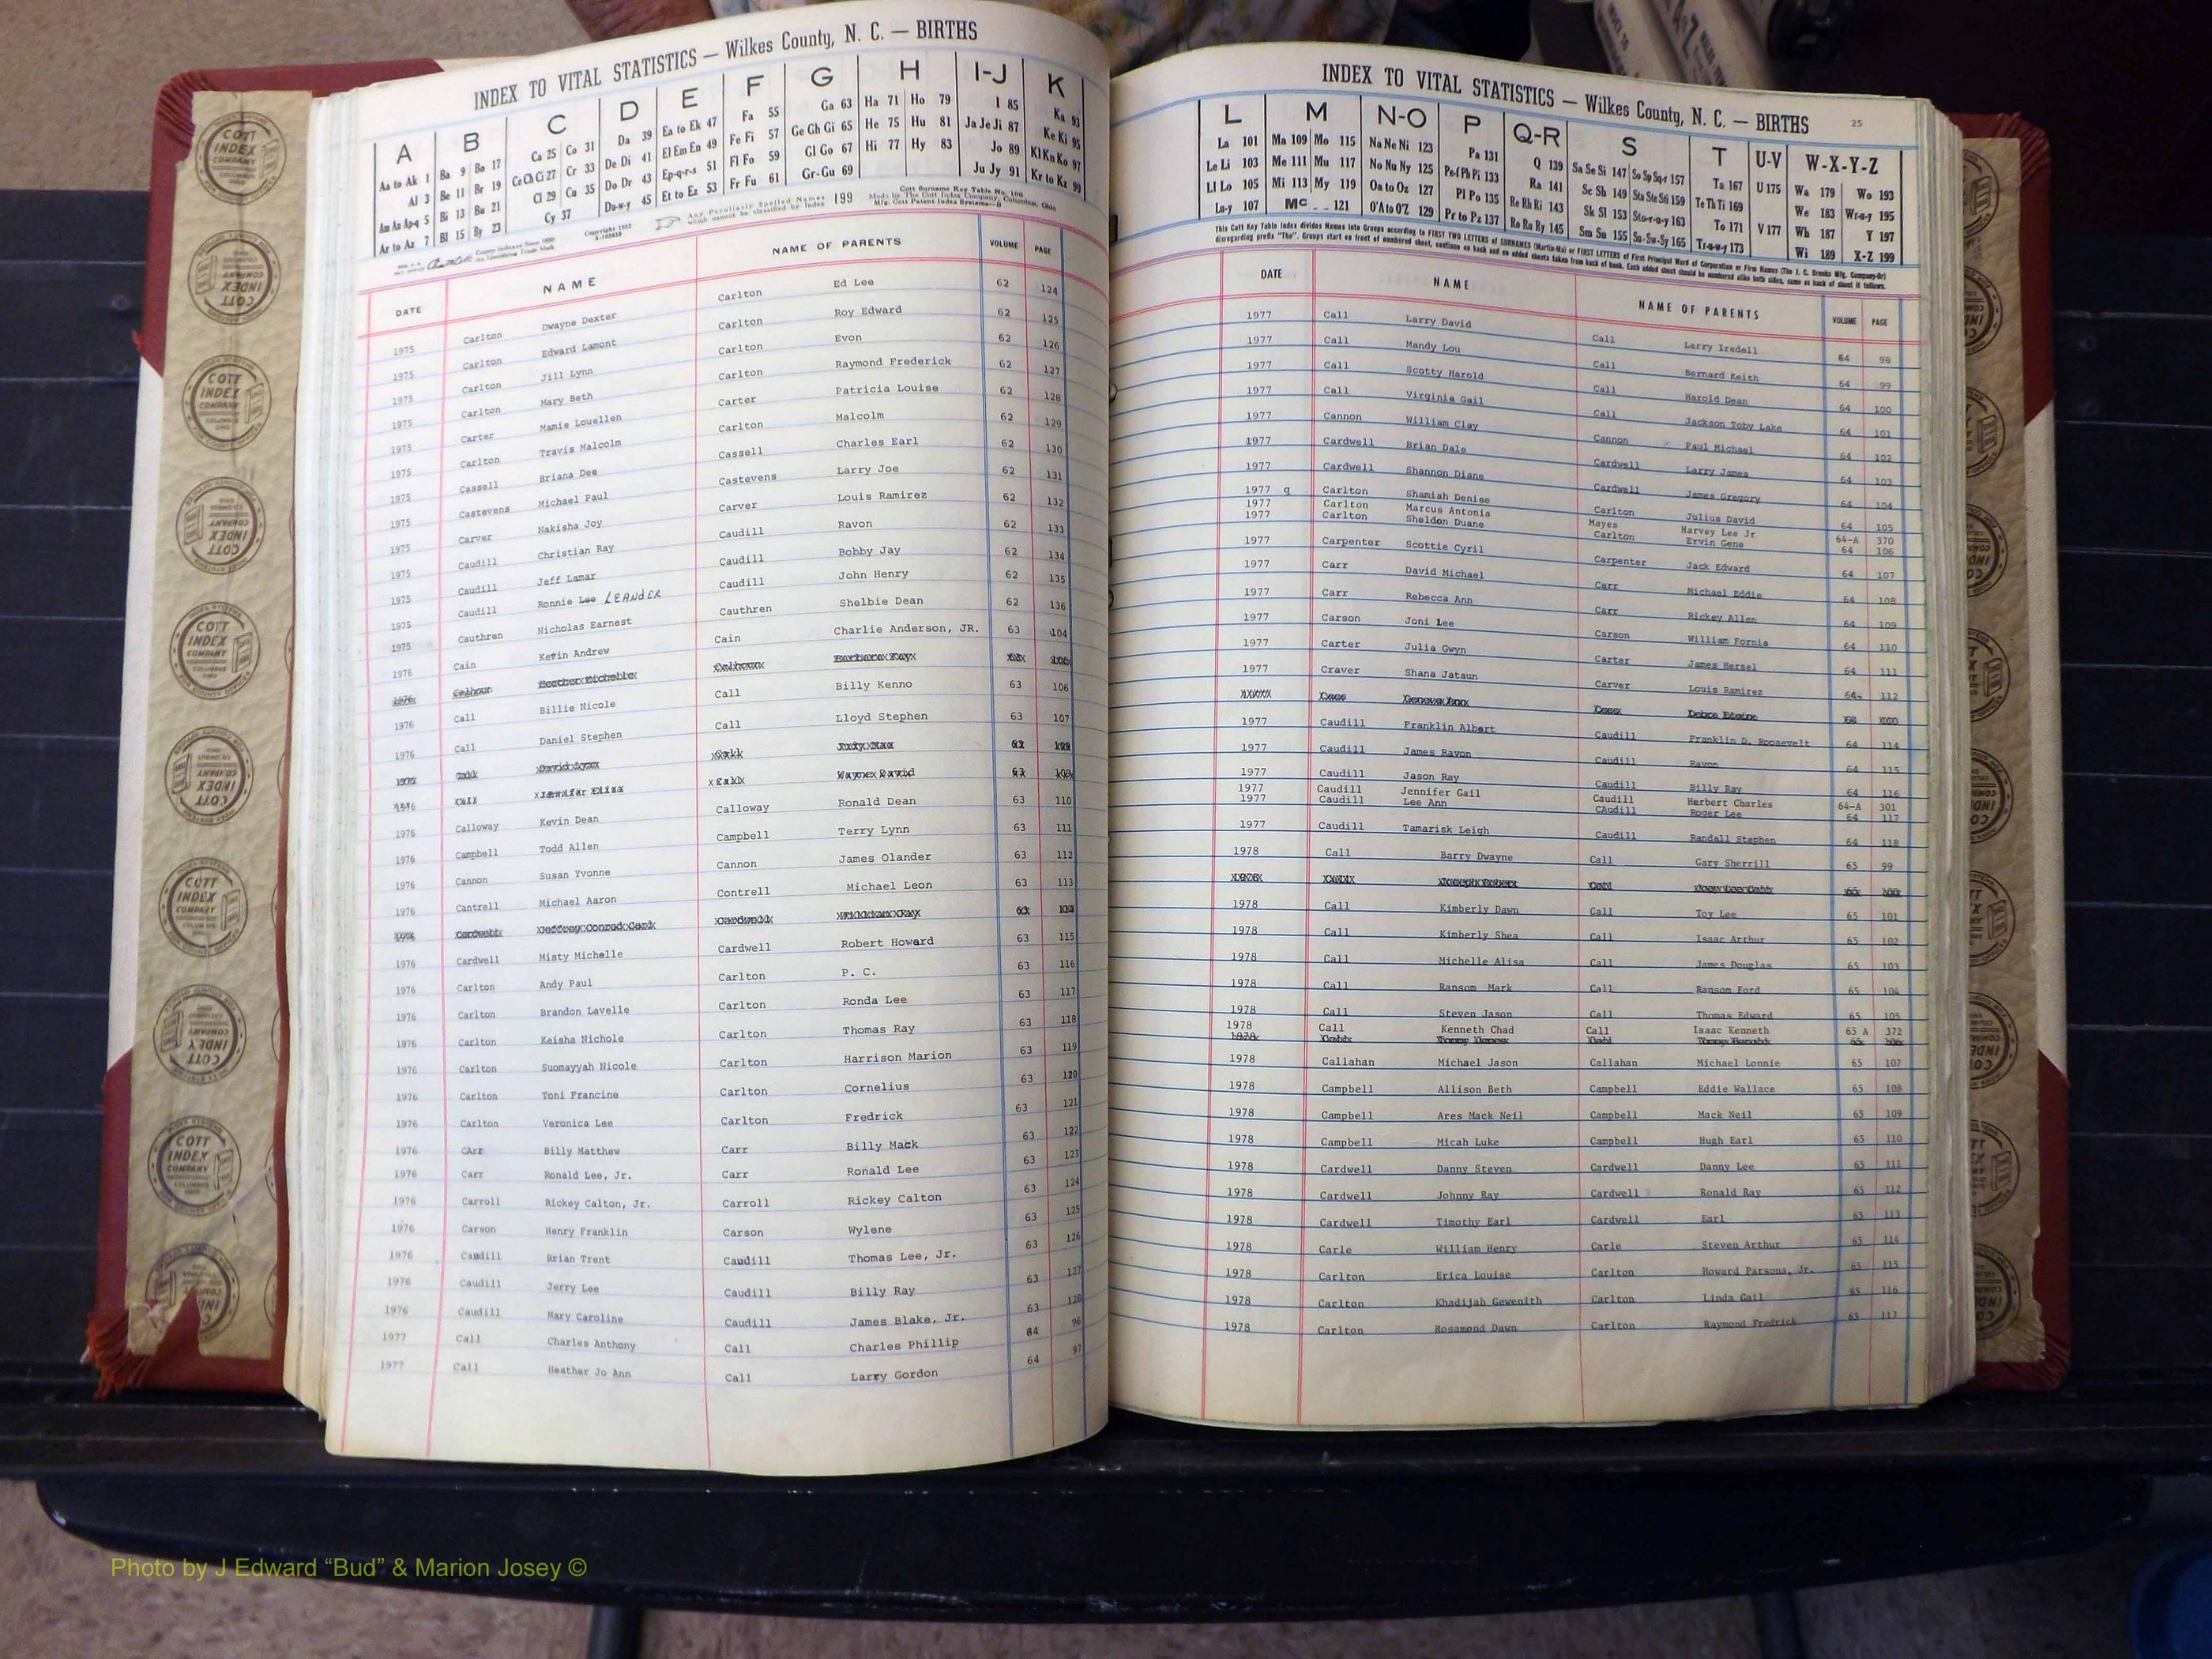 INDEX TO VITAL STATISTICS — Wilkes County, N. C. — BIRTHS
A B C D E F G H I-J K
Aa to Ak 1 Ba 9 Bo 17 Ca 25 Co 31 Da 39 Ea to Ek 47 Fa 55 Ga 63 Ha 71 Ho 79 I 85 Ka 93
Al 3 Be 11 Br 19 Ce Ch Ci 27 Cr 33 De Di 41 El Em En 49 Fe Fi 57 Ge Gh Gi 65 He 75 Hu 81 Ja Je Ji 87 Ke Ki 95
Am An Ap-q 5 Bi 13 Bu 21 Cl 29 Cu 35 Do Dr 43 Ep-q-r-s 51 Fl Fo 59 Gl Go 67 Hi 77 Hy 83 Jo 89 Kl Kn Ko 97
Ar to Az 7 Bl 15 By 23 Cy 37 Du-w-y 45 Et to Ez 53 Fr Fu 61 Gr-Gu 69 Ju Jy 91 Kr to Kz 99
Any Peculiarly Spelled Names which cannot be classified by Index 199
DATE NAME NAME OF PARENTS VOLUME PAGE
1975 Carlton Dwayne Dexter Carlton Ed Lee 62 124
1975 Carlton Edward Lamont Carlton Roy Edward 62 125
1975 Carlton Jill Lynn Carlton Evon 62 126
1975 Carlton Mary Beth Carlton Raymond Frederick 62 127
1975 Carter Mamie Louellen Carter Patricia Louise 62 128
1975 Carlton Travis Malcolm Carlton Malcolm 62 129
1975 Cassell Briana Dee Cassell Charles Earl 62 130
1975 Castevens Michael Paul Castevens Larry Joe 62 131
1975 Carver Nakisha Joy Carver Louis Ramirez 62 132
1975 Caudill Christian Ray Caudill Ravon 62 133
1975 Caudill Jeff Lamar Caudill Bobby Jay 62 134
1975 Caudill Ronnie Lee LEANDER Caudill John Henry 62 135
1975 Cauthren Nicholas Earnest Cauthren Shelbie Dean 62 136
1976 Cain Kevin Andrew Cain Charlie Anderson, JR. 63 104
1976 Call Billie Nicole Call Billy Kenno 63 106
1976 Call Daniel Stephen Call Lloyd Stephen 63 107
1976 Calloway Kevin Dean Calloway Ronald Dean 63 110
1976 Campbell Todd Allen Campbell Terry Lynn 63 111
1976 Cannon Susan Yvonne Cannon James Olander 63 112
1976 Cantrell Michael Aaron Contrell Michael Leon 63 113
1976 Cardwell Misty Michelle Cardwell Robert Howard 63 115
1976 Carlton Andy Paul Carlton P. C. 63 116
1976 Carlton Brandon Lavelle Carlton Ronda Lee 63 117
1976 Carlton Keisha Nichole Carlton Thomas Ray 63 118
1976 Carlton Suomayyah Nicole Carlton Harrison Marion 63 119
1976 Carlton Toni Francine Carlton Cornelius 63 120
1976 Carlton Veronica Lee Carlton Fredrick 63 121
1976 CArr Billy Matthew Carr Billy Mack 63 122
1976 Carr Ronald Lee, Jr. Carr Ronald Lee 63 123
1976 Carroll Rickey Calton, Jr. Carroll Rickey Calton 63 124
1976 Carson Henry Franklin Carson Wylene 63 125
1976 Caudill Brian Trent Caudill Thomas Lee, Jr. 63 126
1976 Caudill Jerry Lee Caudill Billy Ray 63 127
1976 Caudill Mary Caroline Caudill James Blake, Jr. 63 128
1977 Call Charles Anthony Call Charles Phillip 64 96
1977 Call Heather Jo Ann Call Larry Gordon 64 97
INDEX TO VITAL STATISTICS — Wilkes County, N. C. — BIRTHS 25
L M N-O P Q-R S T U-V W-X-Y-Z
La 101 Ma 109 Mo 115 Na Ne Ni 123 Pa 131 Q 139 Sa Se Si 147 So Sp Sq-r 157 Ta 167 U 175 Wa 179 Wo 193
Le Li 103 Me 111 Mu 117 No Nu Ny 125 Pe-f Ph Pi 133 Ra 141 Sc Sh 149 Sta Ste Sti 159 Te Th Ti 169 We 183 Wr-u-y 195
Ll Lo 105 Mi 113 My 119 Oa to Oz 127 Pl Po 135 Re Rh Ri 143 Sk Sl 153 Sto-r-u-y 163 To 171 V 177 Wh 187 Y 197
Lu-y 107 Mc 121 O'A to O'Z 129 Pr to Pz 137 Ro Ru Ry 145 Sm Sn 155 Su-Sw-Sy 165 Tr-u-w-y 173 Wi 189 X-Z 199
This Cott Key Table Index divides Names into Groups according to FIRST TWO LETTERS of SURNAMES (Martin-Ma) or FIRST LETTERS of First Principal Word of Corporation or Firm Names (The J. C. Brooks Mfg. Company-Br)
disregarding prefix "The". Groups start on front of numbered sheet, continue on back and on added sheets taken from back of book. Each added sheet should be numbered alike both sides, same as back of sheet it follows.
DATE NAME NAME OF PARENTS VOLUME PAGE
1977 Call Larry David Call Larry Iredell 64 98
1977 Call Mandy Lou Call Bernard Keith 64 99
1977 Call Scotty Harold Call Harold Dean 64 100
1977 Call Virginia Gail Call Jackson Toby Lake 64 101
1977 Cannon William Clay Cannon Paul Michael 64 102
1977 Cardwell Brian Dale Cardwell Larry James 64 103
1977 Cardwell Shannon Diane Cardwell James Gregory 64 104
1977 q Carlton Shamiah Denise Carlton Julius David 64 105
1977 Carlton Marcus Antonia Mayes Harvey Lee Jr 64-A 370
1977 Carlton Sheldon Duane Carlton Ervin Gene 64 106
1977 Carpenter Scottie Cyril Carpenter Jack Edward 64 107
1977 Carr David Michael Carr Michael Eddie 64 108
1977 Carr Rebecca Ann Carr Rickey Allen 64 109
1977 Carson Joni Lee Carson William Fornia 64 110
1977 Carter Julia Gwyn Carter James Hersel 64 111
1977 Craver Shana Jataun Carver Louis Ramirez 64 112
1977 Caudill Franklin Albert Caudill Franklin D. Roosevelt 64 114
1977 Caudill James Ravon Caudill Ravon 64 115
1977 Caudill Jason Ray Caudill Billy Ray 64 116
1977 Caudill Jennifer Gail Caudill Herbert Charles 64-A 301
1977 Caudill Lee Ann CAudill Roger Lee 64 117
1977 Caudill Tamarisk Leigh Caudill Randall Stephen 64 118
1978 Call Barry Dwayne Call Gary Sherrill 65 99
1978 Call Kimberly Dawn Call Toy Lee 65 101
1978 Call Kimberly Shea Call Isaac Arthur 65 102
1978 Call Michelle Alisa Call James Douglas 65 103
1978 Call Ransom Mark Call Ransom Ford 65 104
1978 Call Steven Jason Call Thomas Edward 65 105
1978 Call Kenneth Chad Call Isaac Kenneth 65 A 372
1978 Callahan Michael Jason Callahan Michael Lonnie 65 107
1978 Campbell Allison Beth Campbell Eddie Wallace 65 108
1978 Campbell Ares Mack Neil Campbell Mack Neil 65 109
1978 Campbell Micah Luke Campbell Hugh Earl 65 110
1978 Cardwell Danny Steven Cardwell Danny Lee 65 111
1978 Cardwell Johnny Ray Cardwell Ronald Ray 65 112
1978 Cardwell Timothy Earl Cardwell Earl 65 113
1978 Carle William Henry Carle Steven Arthur 65 114
1978 Carlton Erica Louise Carlton Howard Parsons, Jr. 65 115
1978 Carlton Khadijah Gewenith Carlton Linda Gail 65 116
1978 Carlton Rosamond Dawn Carlton Raymond Fredrick 65 117
Photo by J Edward “Bud” & Marion Josey ©